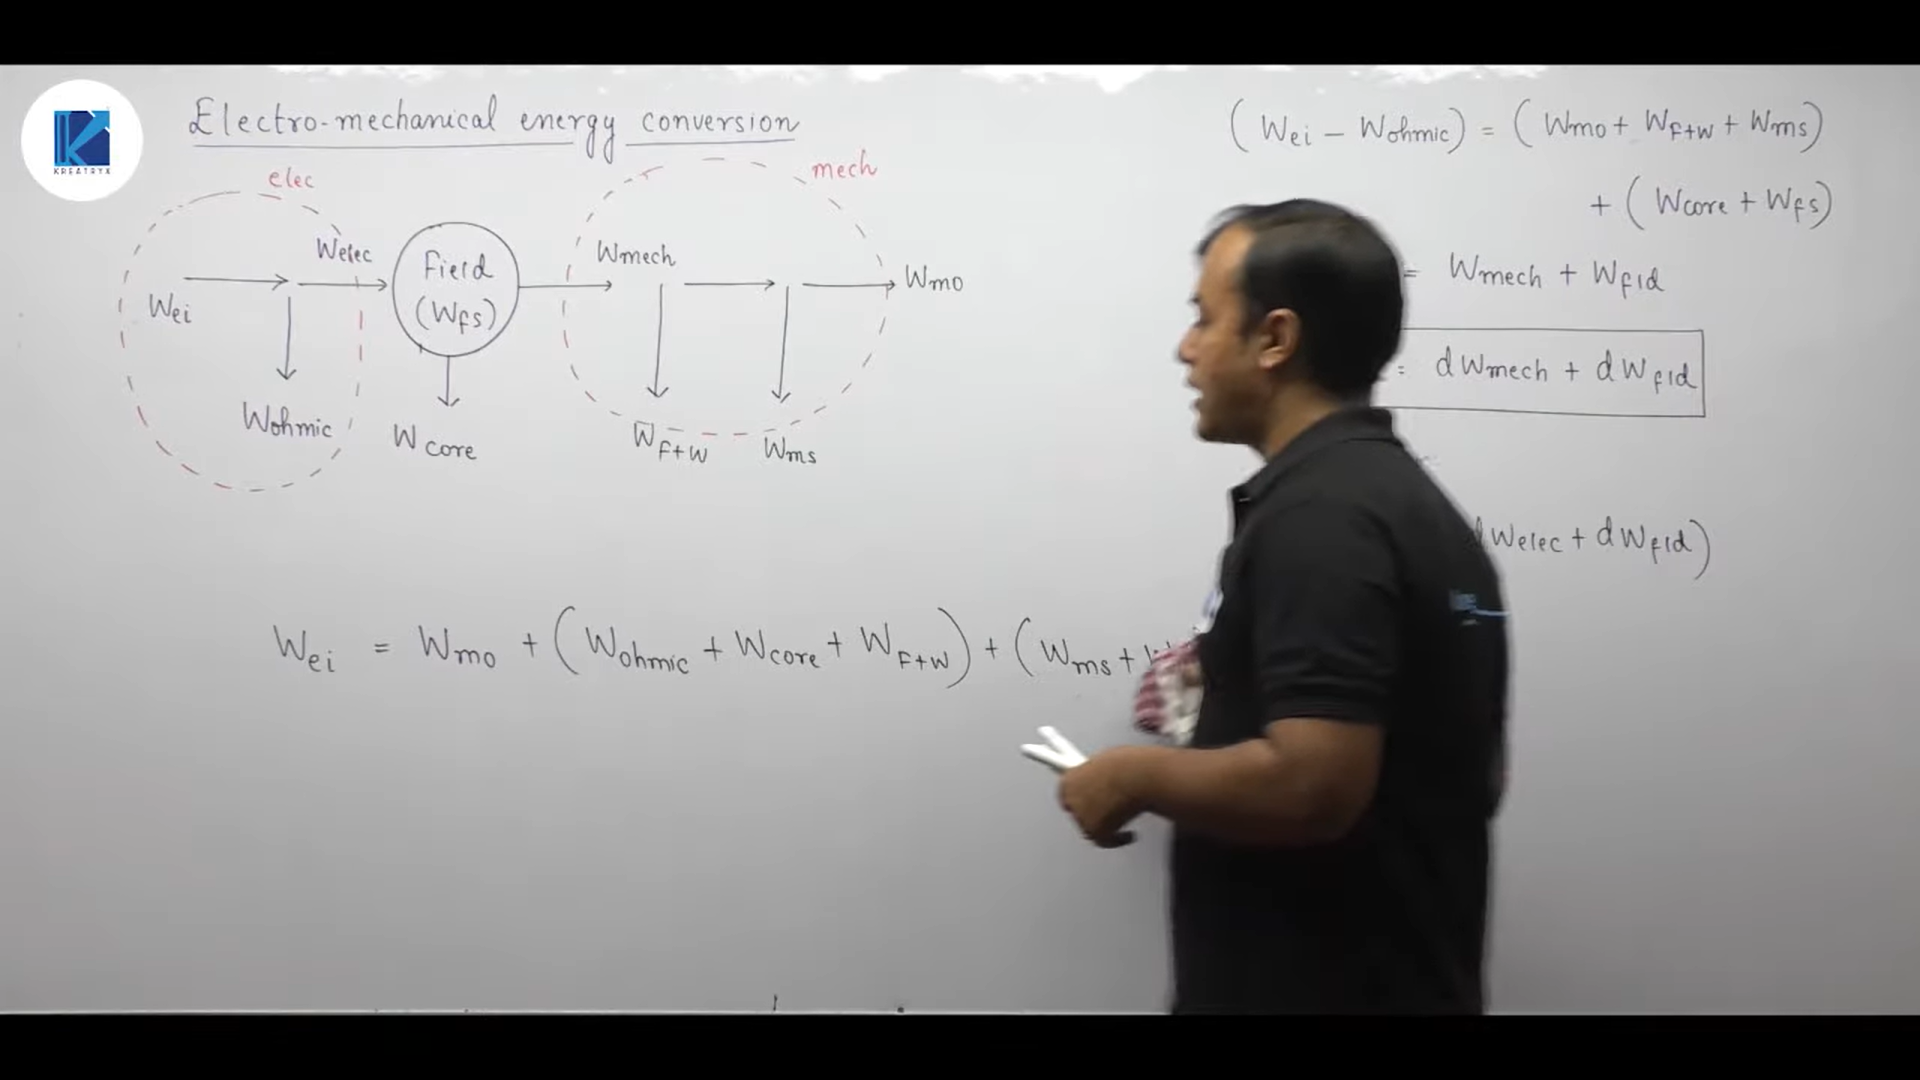 KREATRYX
Electro-mechanical energy conversion
elec
mech
Wei
Welec
Field
(Wfs)
Wmech
Wmo
Wohmic
Wcore
WF+W
Wms
Wei = Wmo + (Wohmic + Wcore + WF+W) + (Wms +
(Wei - Wohmic) = (Wmo + WF+W + Wms)
+ (Wcore + Wfs)
= Wmech + Wfld
= dWmech + dWfld
dWelec + dWfld)